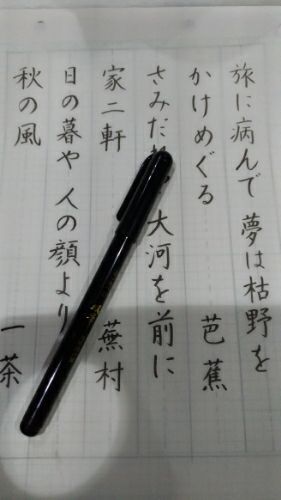 旅に病んで 夢は枯野を
かけめぐる 芭蕉
さみだ 大河を前に
家二軒 蕪村
日の暮や 人の顔より
秋の風 一茶